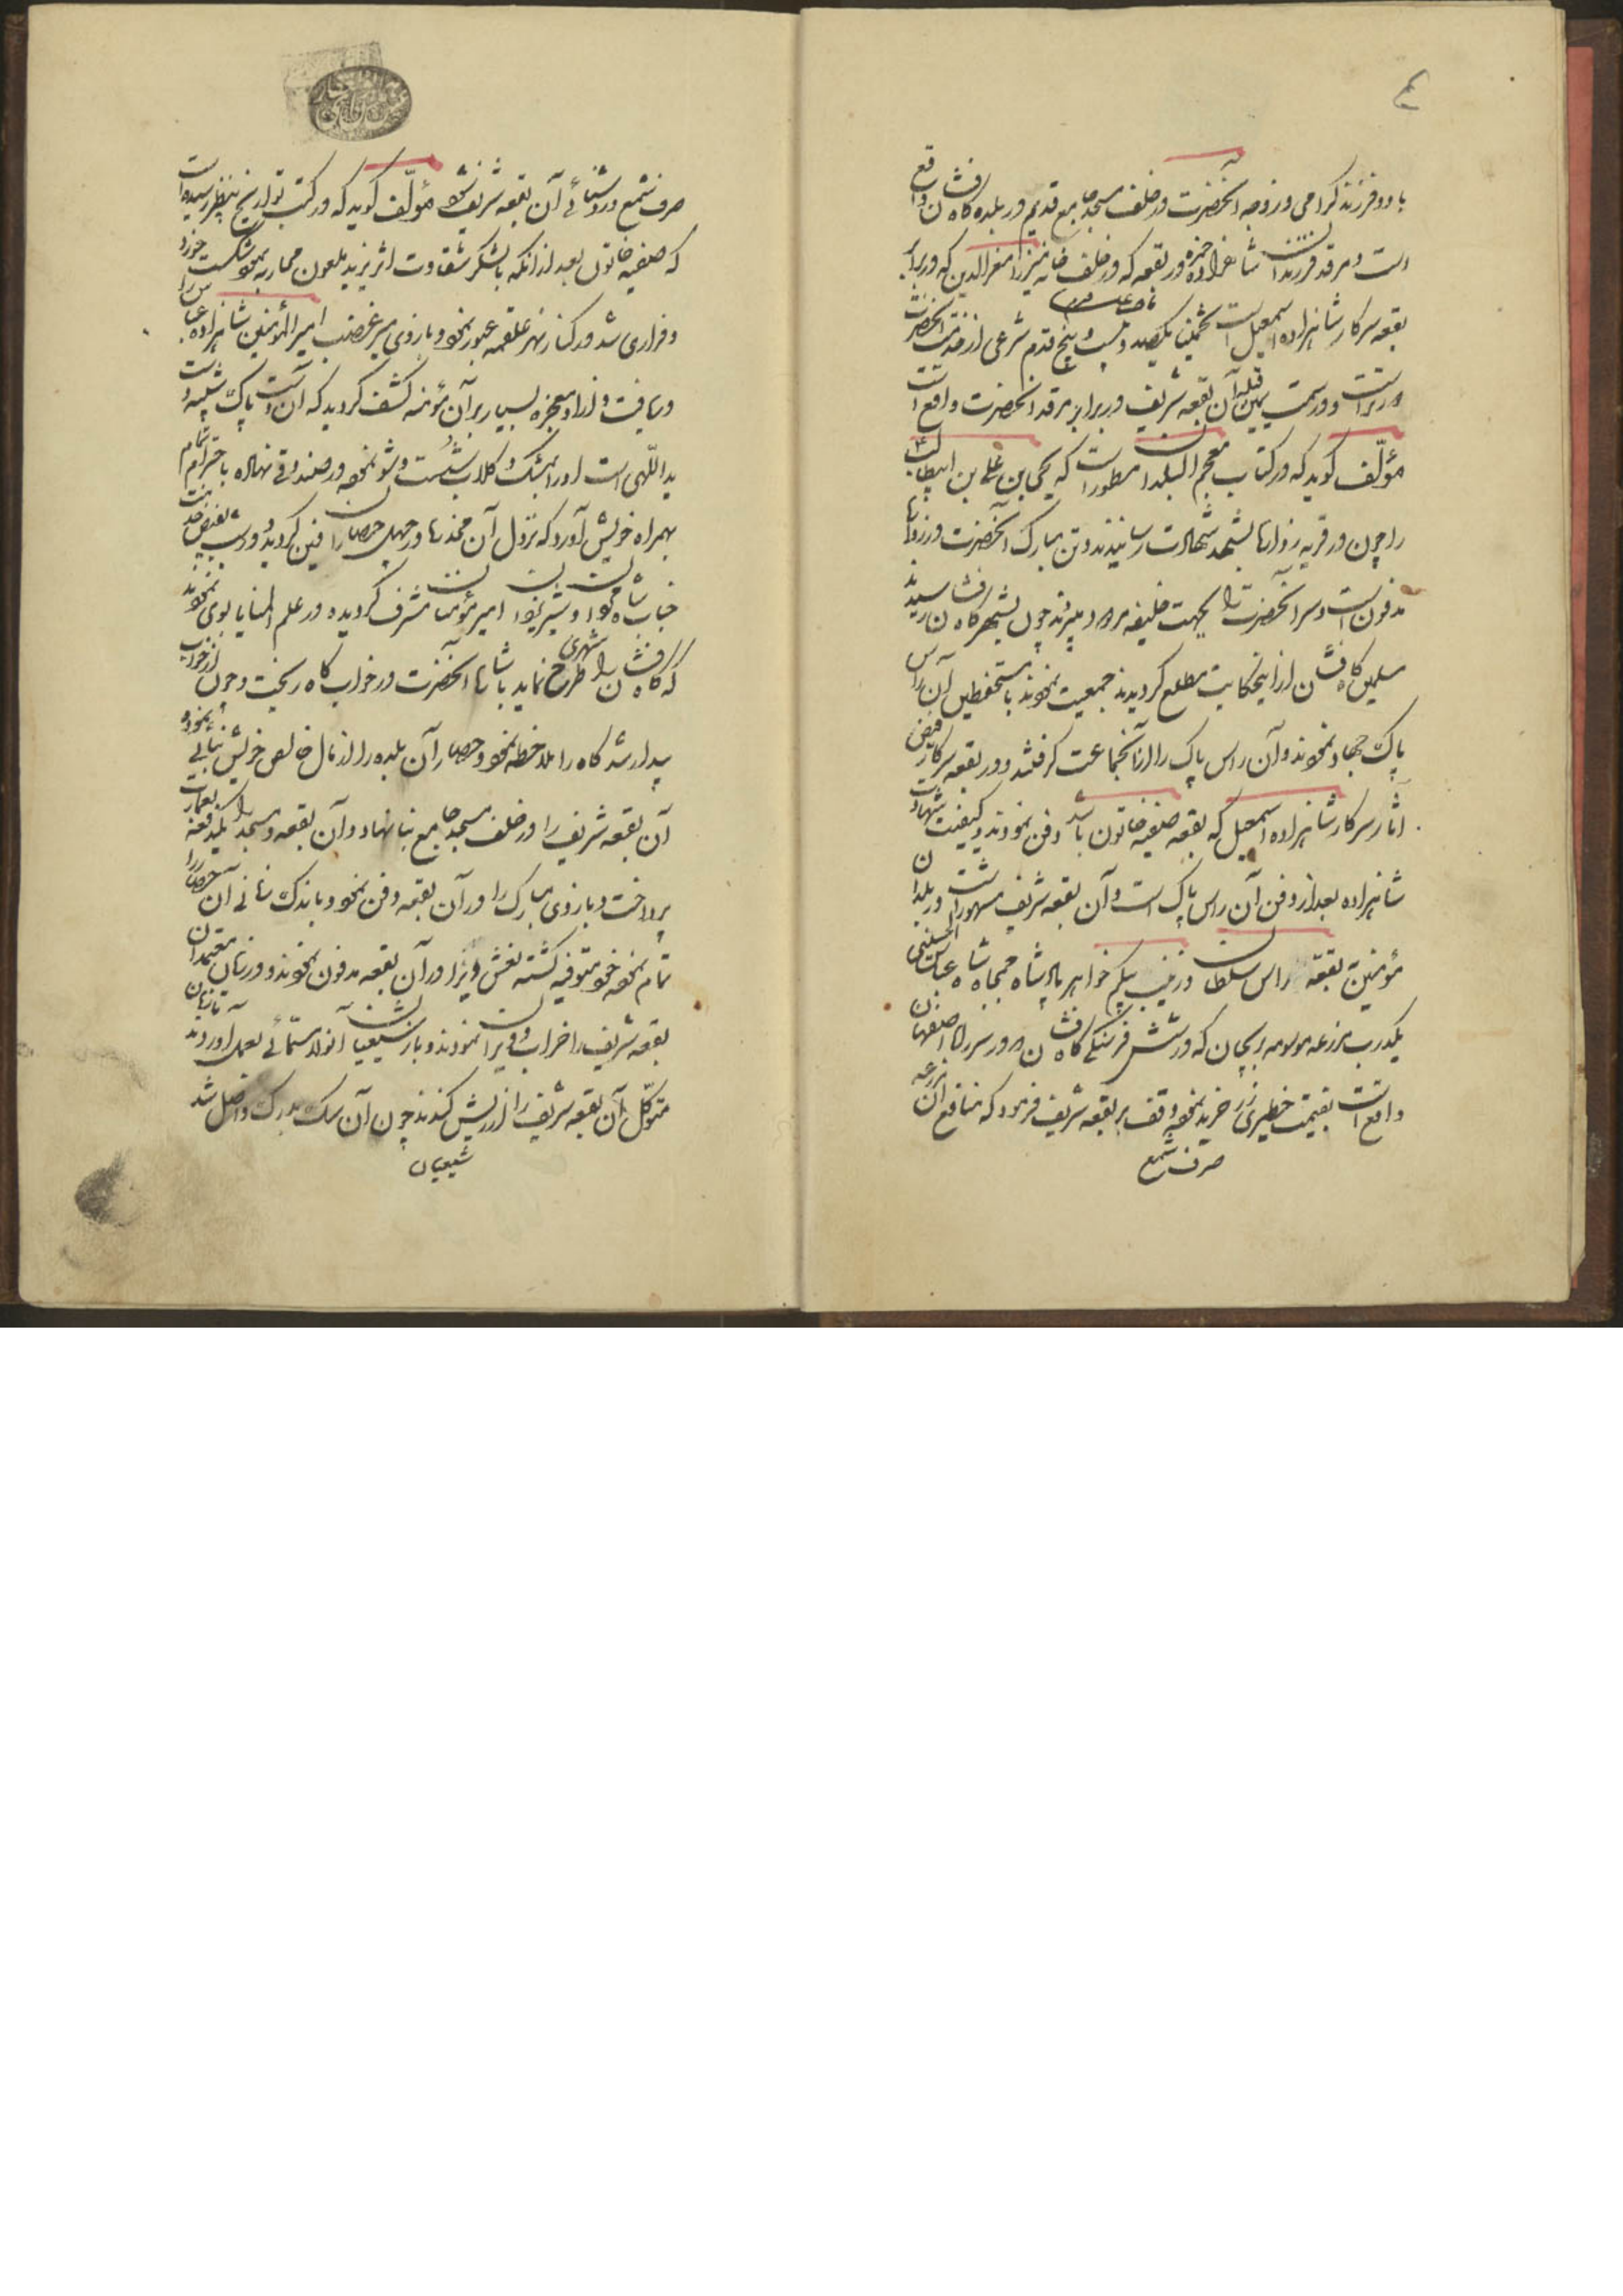 با دو فرزند گرامی و زوجه آنحضرت در خلف مسجد جامع قدیم در بلده کاشان واقع
است و مرقد فرزندان شاهزاده حمزه در بقعه که در خلف خانه میرزا معزالدین که در برابر
بقعه سرکار شاهزاده اسمعیل است تخمیناً یکصد و بیست و پنج قدم شرعی از مرقد آنحضرت
دور تر است و در سمت یمین قبله آن بقعه شریف در برابر مرقد آنحضرت واقع است
مؤلف گوید که در کتاب معجم البلدان مسطور است که یحیی بن علی بن ابیطالب
را چون در قریه زوارها بشهد شهادت رسانیدند و تن مبارک آنحضرت در زوارها
مدفون است و سر آنحضرت را بجهت خلیفه مرو میبردند چون بشهر کاشان رسیدند
مسلمین کاشان از اینحکایت مطلع گردیدند جمعیت نمودند با مستحفظین آن راس
پاک جهاد نمودند و آن راس پاک را از آنجماعت گرفتند و در بقعه سرکار فیض
آثار سرکار شاهزاده اسمعیل که بقعه صفیه خاتون باشد دفن نمودند و کیفیت شهادت
شاهزاده بعد از دفن آن راس پاک است و آن بقعه شریف مشهور است در بلدان
مؤمنین بقعه راس سلطان و زینب بیگم خواهر پادشاه جمجاه شاه عباس الحسینی
یکدرب مزرعه موسومه بریجان که در شش فرسنگی کاشان و در سر راه اصفهان
واقع است بقیمت خطیری زر خرید نموده وقف بر بقعه شریف فرمود که منافع آن مزرعه
صرف شمع
صرف شمع و روشنائی آن بقعه شریف شود مؤلف گوید که در کتب تواریخ بنظر رسیده است
که صفیه خاتون بعد از آنکه با لشکر شقاوت اثر یزید ملعون محاربه نمود شکست خورد
و فراری شد در کنار نهر علقمه عبور نمود و بازوی میر غضب امیرالمؤمنین شاهزاده عباس را
دریافت و از او معجزه بسیار بر آن مؤمنه کشف گردید که آن دست پاک شبیه دست
یداللهی است او را بمشک و گلاب شست و شو نموده در صندوقی نهاده با احترام تمام
بهمراه خویش آورد که نزول آن مخدره در چهل حصاران فین گردید و در شب بفیض خدمت
جناب شاه و شیر امیر مؤمنان مشرف گردیده در علم المنایا بوی نمودند
که کاشان را طرح نماید باشاره آنحضرت در خواب کاه ریخت و چون از خواب
بیدار شد کاه را ملاحظه نمود و حصار آن بلده را از مال خالص خویش بنائی نمود
آن بقعه شریف را در خلف مسجد جامع بنا نهاد و آن بقعه و مسجد را یکدفعه بعمارت
پرداخت و بازوی مبارک را در آن بقعه دفن نمود و باندک زمانی آن حصار را
تمام نموده خود متوفیه گشته نعش ویرا در آن بقعه مدفون نمودند و در زمان معتمدان
بقعه شریف را خراب و ویران نمودند و باز شیعیان آنولا بنائی بعمل آوردند تا زمان
متوکل آن بقعه شریف را از ریش کندند چون آن سگ بدرک واصل شد
شیعیان